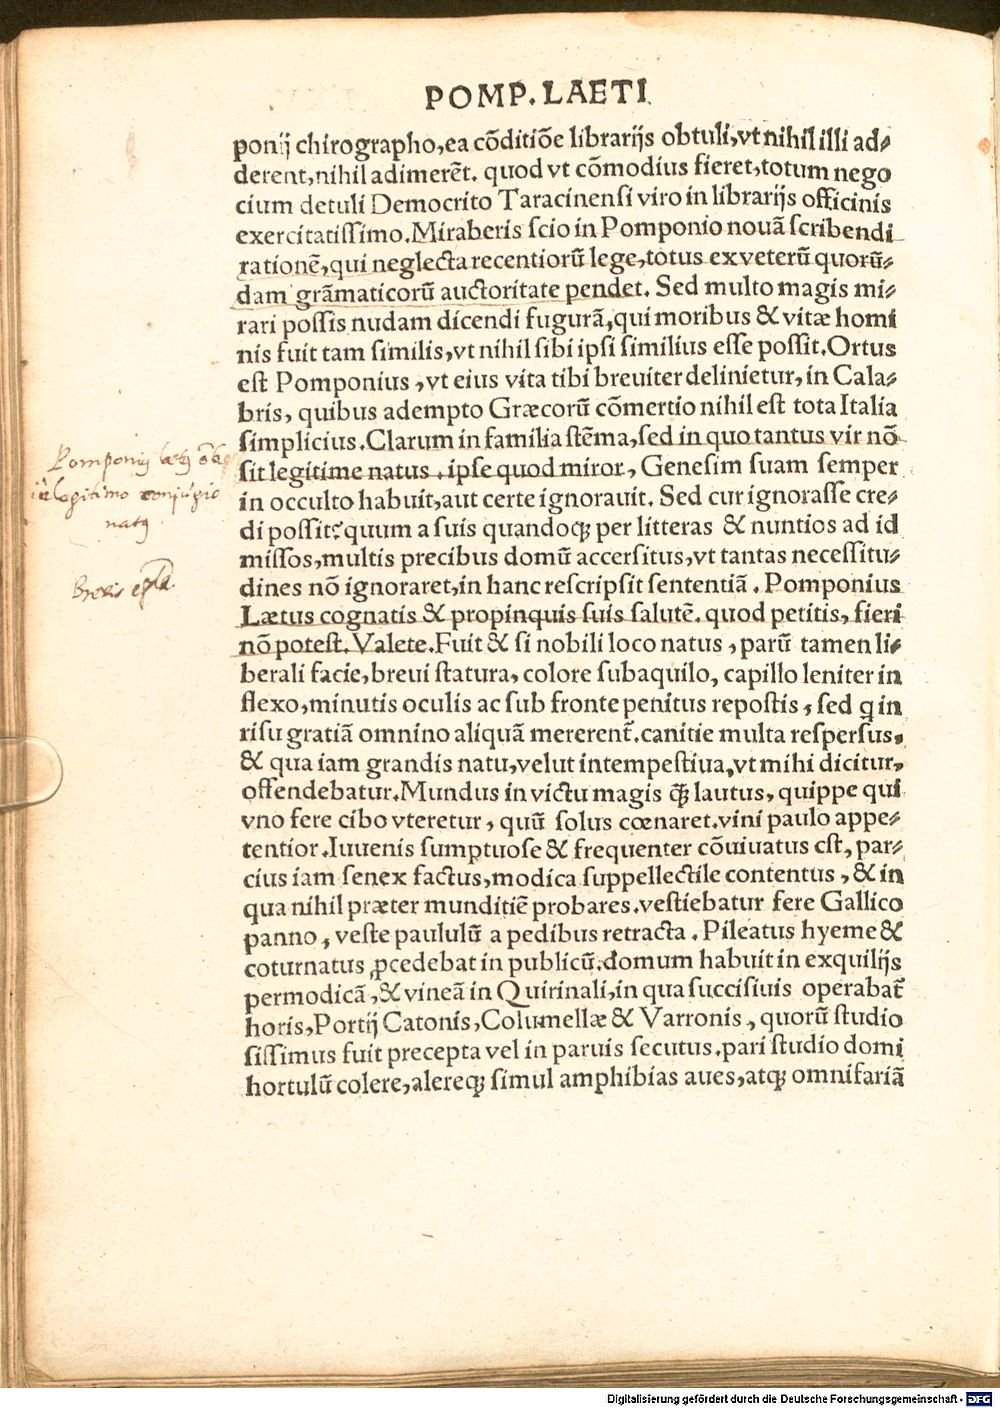 POMP. LAETI
ponij chirographo, ea cōditiōe librarijs obtuli, vt nihil illi ad⸗
derent, nihil adimerēt. quod vt cōmodius fieret, totum nego
cium detuli Democrito Taracinensi viro in librarijs officinis
exercitatissimo. Miraberis scio in Pomponio nouā scribendi
rationē, qui neglecta recentiorū lege, totus ex veterū quorū⸗
dam grāmaticorū auctoritate pendet. Sed multo magis mi⸗
rari possis nudam dicendi fugurā, qui moribus & vitæ homi
nis fuit tam similis, vt nihil sibi ipsi similius esse possit. Ortus
est Pomponius, vt eius vita tibi breuiter delinietur, in Cala⸗
bris, quibus adempto Græcorū cōmertio nihil est tota Italia
simplicius. Clarum in familia stēma, sed in quo tantus vir nō
sit legitime natus. ipse quod miror, Genesim suam semper
in occulto habuit, aut certe ignorauit. Sed cur ignorasse cre⸗
di possit? quum a suis quandoqꝫ per litteras & nuntios ad id
missos, multis precibus domū accersitus, vt tantas necessitu⸗
dines nō ignoraret, in hanc rescripsit sententiā. Pomponius
Lætus cognatis & propinquis suis salutē. quod petitis, fieri
nō potest. Valete. Fuit & si nobili loco natus, parū tamen li⸗
berali facie, breui statura, colore subaquilo, capillo leniter in
flexo, minutis oculis ac sub fronte penitus repostis, sed q in
risu gratiā omnino aliquā mererent̄. canitie multa respersus,
& qua iam grandis natu, velut intempestiua, vt mihi dicitur,
offendebatur. Mundus in victu magis q̄ꝫ lautus, quippe qui
vno fere cibo vteretur, quū solus cœnaret. vini paulo appe⸗
tentior. Iuuenis sumptuose & frequenter cōuiuatus est, par⸗
cius iam senex factus, modica suppellectile contentus, & in
qua nihil præter munditiē probares. vestiebatur fere Gallico
panno, veste paululū a pedibus retracta. Pileatus hyeme &
coturnatus ꝓcedebat in publicū. domum habuit in exquilijs
permodicā, & vineā in Quirinali, in qua succisiuis operabat̄
horis, Portij Catonis, Columellæ & Varronis, quorū studio
sissimus fuit precepta vel in paruis secutus. pari studio domi
hortulū colere, alereqꝫ simul amphibias aues, atqꝫ omnifariā
Pomponiꝰ lætꝰ
illegitimo conjugio
natꝰ
Brevis epl̄a
Digitalisierung gefördert durch die Deutsche Forschungsgemeinschaft - DFG